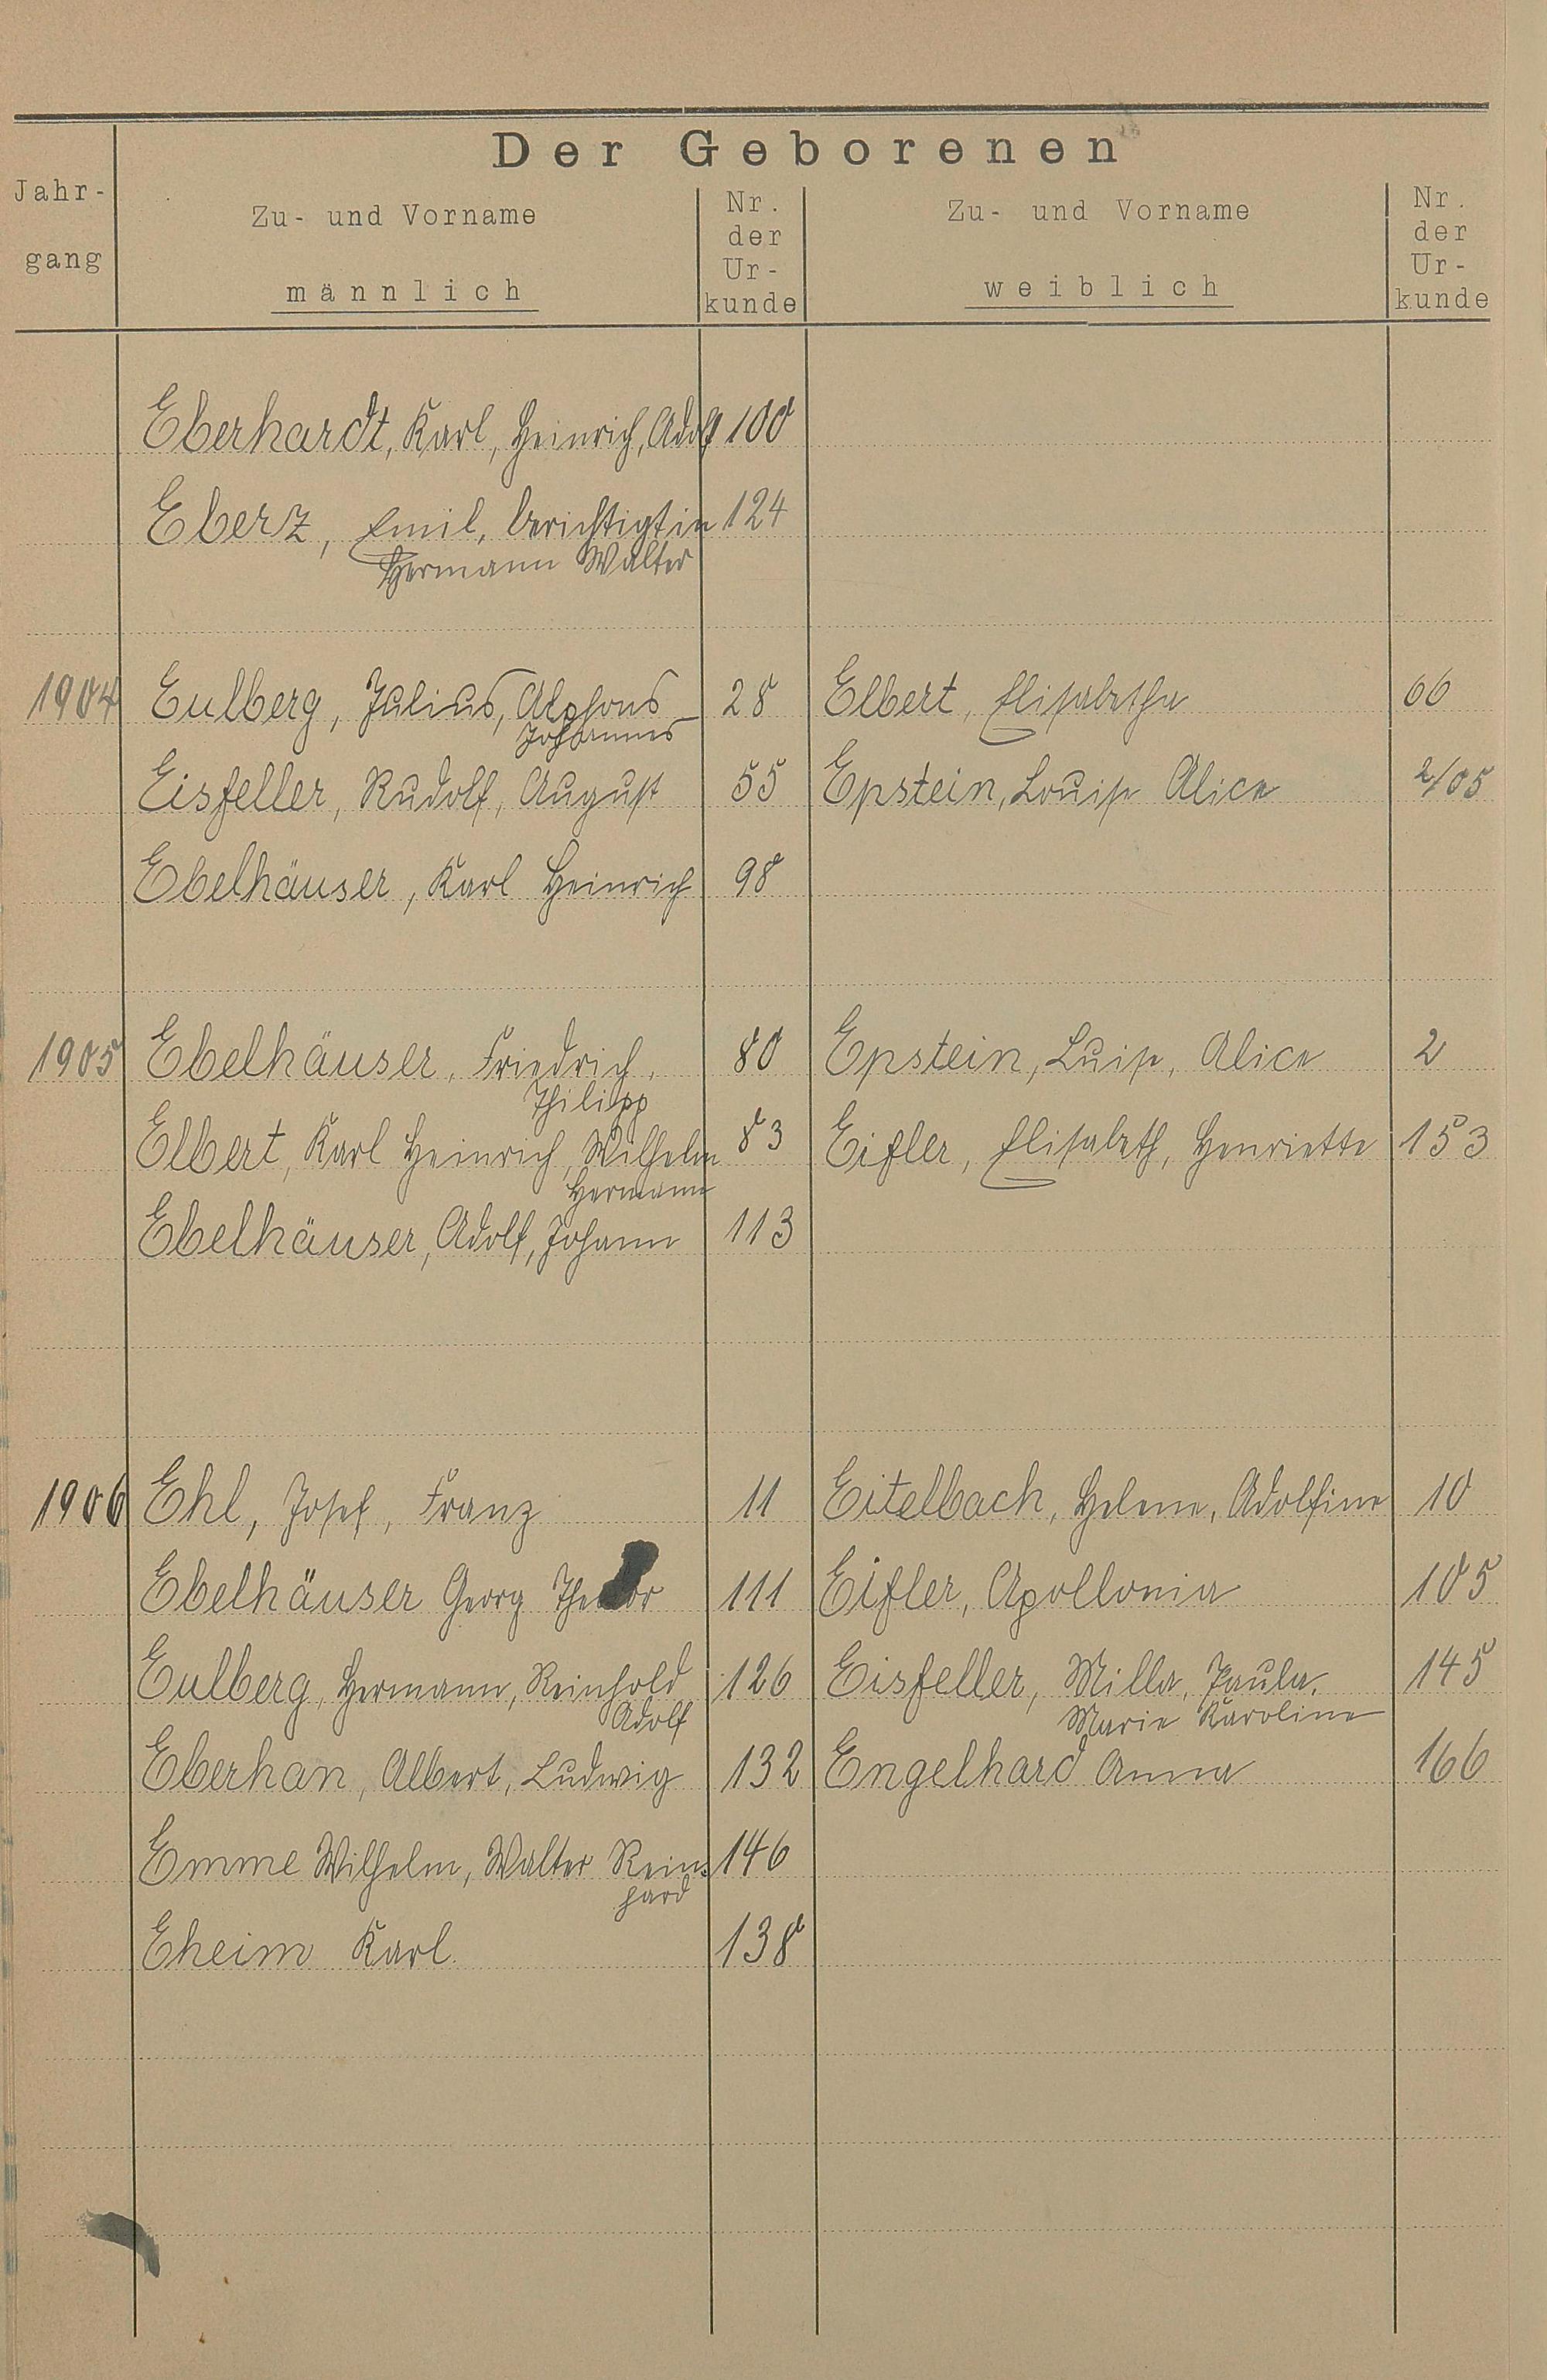 Der Geborenen
Jahr-
gang
Zu- und Vorname
männlich
Nr.
der
Ur-
kunde
Zu- und Vorname
weiblich
Nr.
der
Ur-
kunde
Eberhardt, Karl, Heinrich, Adolf 100
Eberz, Emil, berichtigt in 124
Hermann Walter
1904 Eulberg, Julius, Alphons 28 Elbert, Elisabetha 66
Johannes
Eisfeller, Rudolf, August 55 Epstein, Louise Alice 2/05
Ebelhäuser, Karl Heinrich 98
1905 Ebelhäuser, Friedrich, 80 Epstein, Luise, Alice 2
Philipp
Elbert, Karl Heinrich, Wilhelm 83 Eifler, Elisabeth, Henriette 153
Hermann
Ebelhäuser, Adolf, Johann 113
1906 Ehl, Josef, Franz 11 Eitelbach, Helene, Adolfine 10
Ebelhäuser Georg 111 Eifler, Apollonia 105
Eulberg, Hermann, Reinhold 126 Eisfeller, Milla, Paula, 145
Adolf Marie Karoline
Eberhan, Albert, Ludwig 132 Engelhard Anna 166
Emme Wilhelm, Walter Rein- 146
hard
Eheim Karl. 138